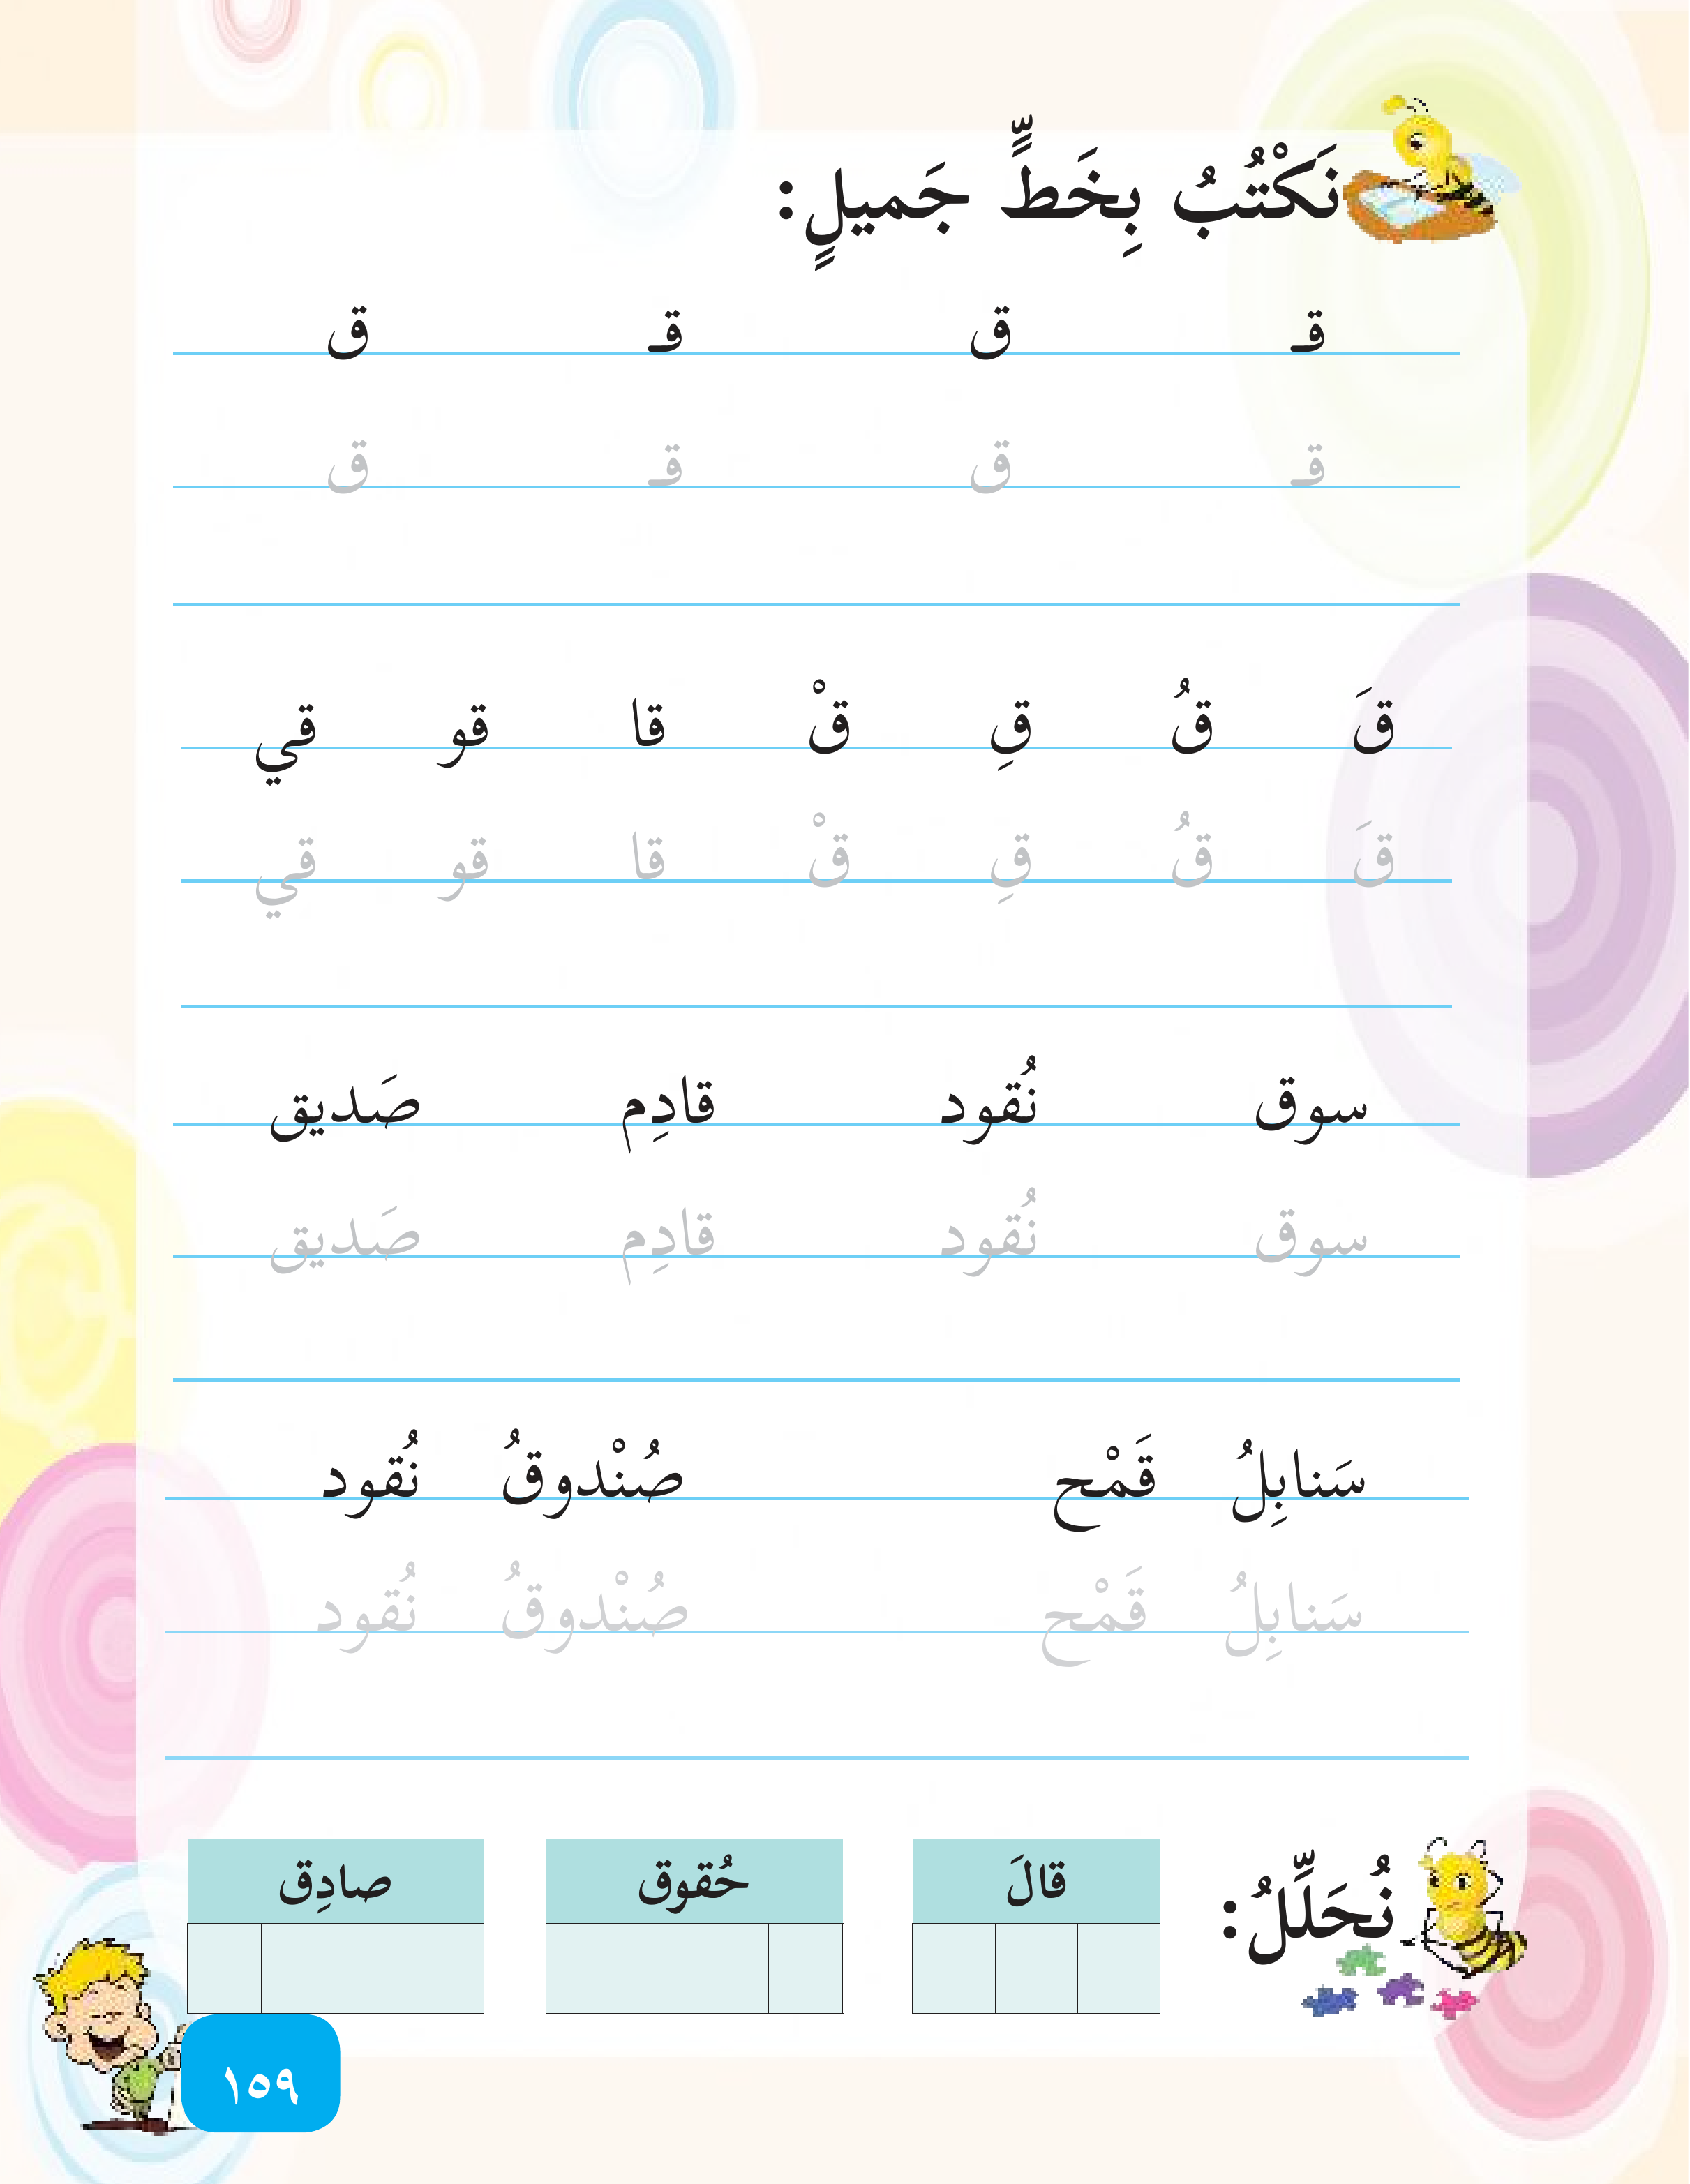 نَكْتُبُ بِخَطٍّ جَميلٍ:
قـ ق قـ ق
قـ ق قـ ق
قَ قُ قِ قْ قا قو قي
قَ قُ قِ قْ قا قو قي
سوق نُقود قادِم صَديق
سوق نُقود قادِم صَديق
سَنابِلُ قَمْح صُنْدوقُ نُقود
سَنابِلُ قَمْح صُنْدوقُ نُقود
نُحَلِّلُ:
قالَ حُقوق صادِق
١٥٩